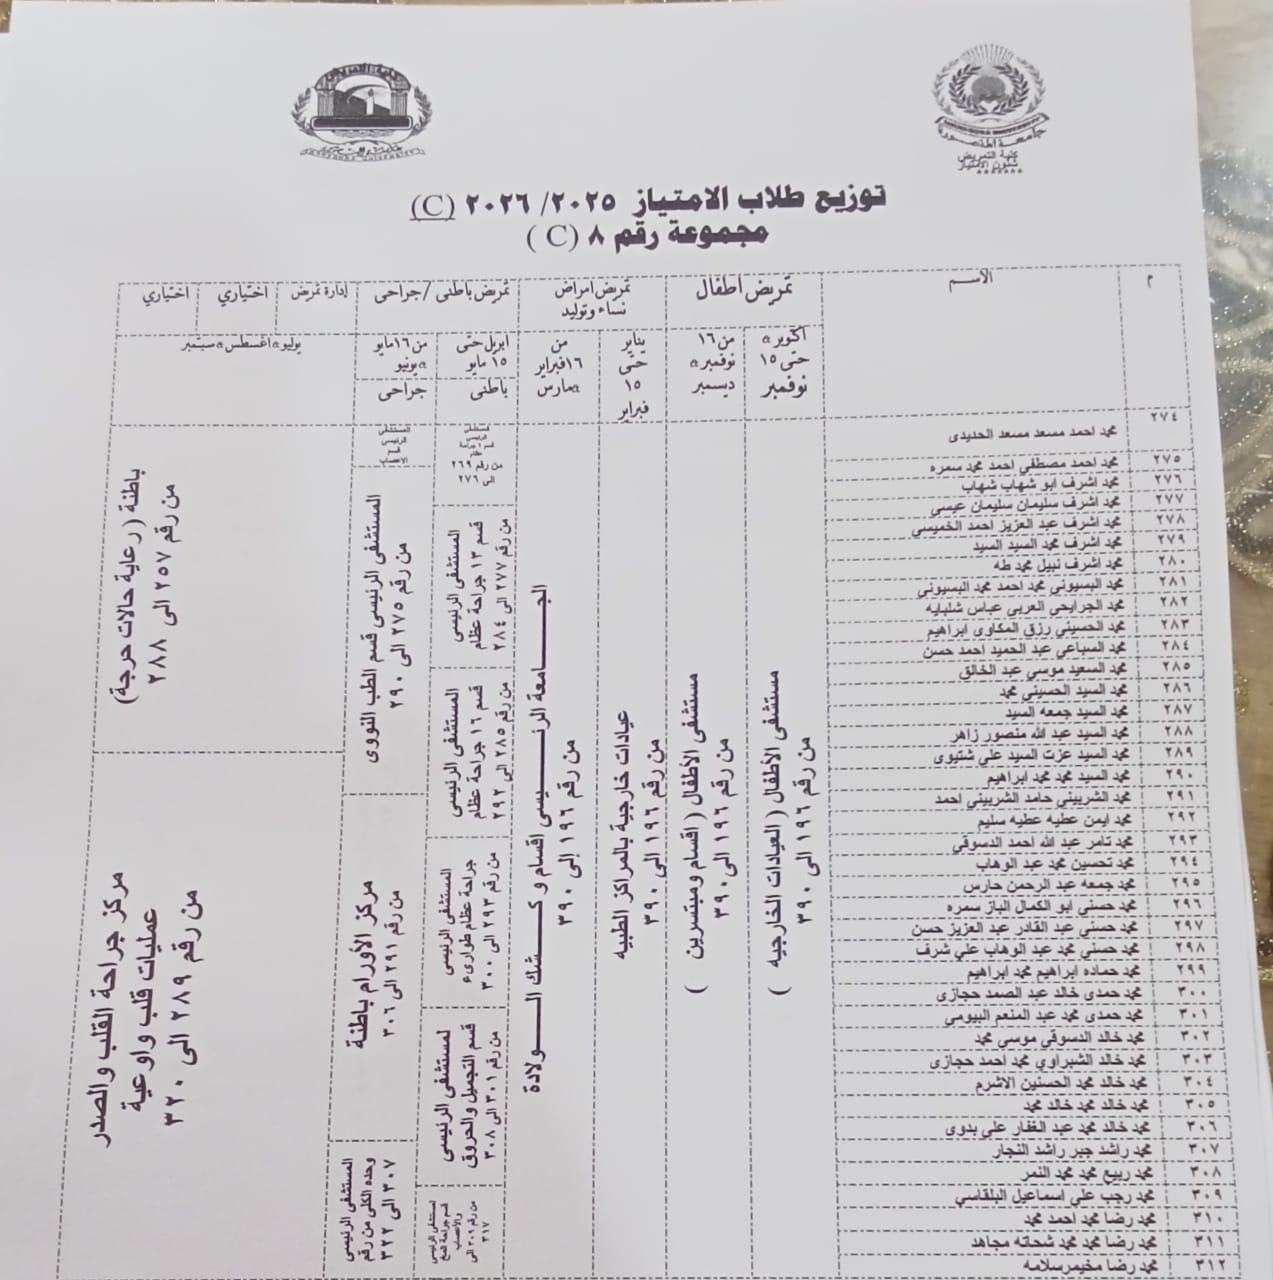 جامعة المنصورة
كلية التمريض
شئون الامتياز
*******
توزيع طلاب الامتياز ٢٠٢٥/ ٢٠٢٦ (C)
مجموعة رقم ٨ (C )
م
الاسم
تمريض اطفال
تمريض امراض نساء وتوليد
تمريض باطنى /جراحى
إدارة تمريض
اختياري
اختياري
أكتوبر& حتى ١٥ نوفمبر
من ١٦ نوفمبر& ديسمبر
يناير حتى ١٥ فبراير
من ١٦فبراير &مارس
ابريل حتى ١٥ مايو
من ١٦مايو &يونيو
يوليو& اغسطس& سبتمبر
باطنى
جراحى
٢٧٤ محمد احمد مسعد مسعد الحديدى
٢٧٥ محمد احمد مصطفي احمد محمد سمره
٢٧٦ محمد اشرف ابو شهاب شهاب
٢٧٧ محمد اشرف سليمان سليمان عيسى
٢٧٨ محمد اشرف عبد العزيز احمد الخميسي
٢٧٩ محمد اشرف محمد السيد السيد
٢٨٠ محمد اشرف نبيل محمد طه
٢٨١ محمد البسيوني محمد احمد محمد البسيوني
٢٨٢ محمد الجرايحي العربي عباس شلبايه
٢٨٣ محمد الحسيني رزق المكاوى ابراهيم
٢٨٤ محمد السباعي عبد الحميد احمد حسن
٢٨٥ محمد السعيد موسي عبد الخالق
٢٨٦ محمد السيد الحسيني محمد
٢٨٧ محمد السيد جمعه السيد
٢٨٨ محمد السيد عبد الله منصور زاهر
٢٨٩ محمد السيد عزت السيد علي شتيوى
٢٩٠ محمد السيد محمد محمد ابراهيم
٢٩١ محمد الشربيني حامد الشربيني احمد
٢٩٢ محمد ايمن عطيه عطيه سليم
٢٩٣ محمد تامر عبد الله احمد الدسوقي
٢٩٤ محمد تحسين محمد عبد الوهاب
٢٩٥ محمد جمعه عبد الرحمن حارس
٢٩٦ محمد حسني ابو الكمال الباز سمره
٢٩٧ محمد حسني عبد القادر عبد العزيز حسن
٢٩٨ محمد حسني محمد عبد الوهاب علي شرف
٢٩٩ محمد حماده ابراهيم محمد ابراهيم
٣٠٠ محمد حمدى خالد عبد الصمد حجازى
٣٠١ محمد حمدى محمد عبد المنعم البيومى
٣٠٢ محمد خالد الدسوقي موسي محمد
٣٠٣ محمد خالد الشبراوي محمد احمد حجازى
٣٠٤ محمد خالد محمد الحسنين الاشرم
٣٠٥ محمد خالد محمد خالد محمد
٣٠٦ محمد خالد محمد عبد الغفار علي بدوى
٣٠٧ محمد راشد جبر راشد النجار
٣٠٨ محمد ربيع محمد محمد النمر
٣٠٩ محمد رجب علي اسماعيل البلقاسي
٣١٠ محمد رضا محمد احمد محمد
٣١١ محمد رضا محمد محمد شحاته مجاهد
٣١٢ محمد رضا مخيمرسلامه
مستشفى الأطفال ( العيادات الخارجيه )
من رقم ١٩٦ الى ٣٩٠
مستشفى الأطفال ( اقسام ومبتسرين )
من رقم ١٩٦ الى ٣٩٠
عيادات خارجية بالمراكز الطبيه
من رقم ١٩٦ الى ٣٩٠
الجـــــامعة الرئـــيسى اقسام و كـــشك الـــولادة
من رقم ١٩٦ إلى ٣٩٠
من رقم ٢٦٩ الى ٢٧٦
المستشفى الرئيسى
قسم ١٣ جراحة عظام
من رقم ٢٧٧ الى ٢٨٤
المستشفى الرئيسى
قسم ١٦ جراحة عظام
من رقم ٢٨٥ الى ٢٩٢
المستشفى الرئيسى
جراحة عظام طوارىء
من رقم ٢٩٣ الى ٣٠٠
لمستشفى الرئيسى
قسم التجميل والحروق
من رقم ٣٠١ الى ٣٠٨
لمستشفى الرئيسى
قسم جراحة المخ والأعصاب
من رقم ٣٠٩ الى ٣١٧
المستشفى الرئيسى
المستشفى الرئيسى قسم الطب النووى
من رقم ٢٧٥ الى ٢٩٠
مركز الأورام باطنة
من رقم ٢٩١ الى ٣٠٦
المستشفى الرئيسى
وحده الكلى من رقم
٣٠٧ الى ٣٢٢
باطنة (رعاية حالات حرجة)
من رقم ٢٥٧ الى ٢٨٨
مركز جراحة القلب والصدر
عمليات قلب واوعية
من رقم ٢٨٩ الى ٣٢٠